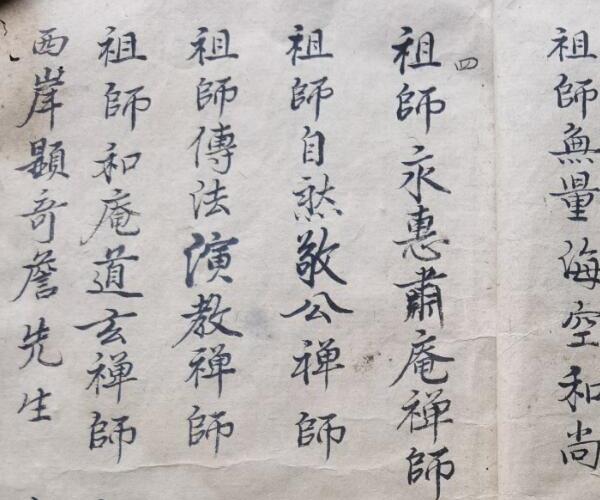 祖師無量海空和尚
四
祖師永惠肅庵禅師
祖師自然敬公禅師
祖師傳法演教禅師
祖師和庵道玄禅師
西岸顕奇詹先生